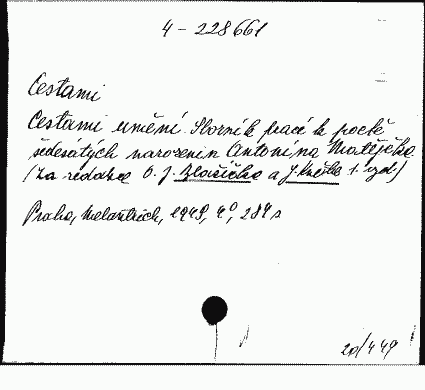 4 - 228661
Cestami
Cestami umění. Sborník prací k poctě
šedesátých narozenin Antonína Matějčka.
(Za redakce O. J. Blažíčka a J. Květa 1. vyd.)
Praha, Melantrich, 1949, 4°, 284 s
20/449